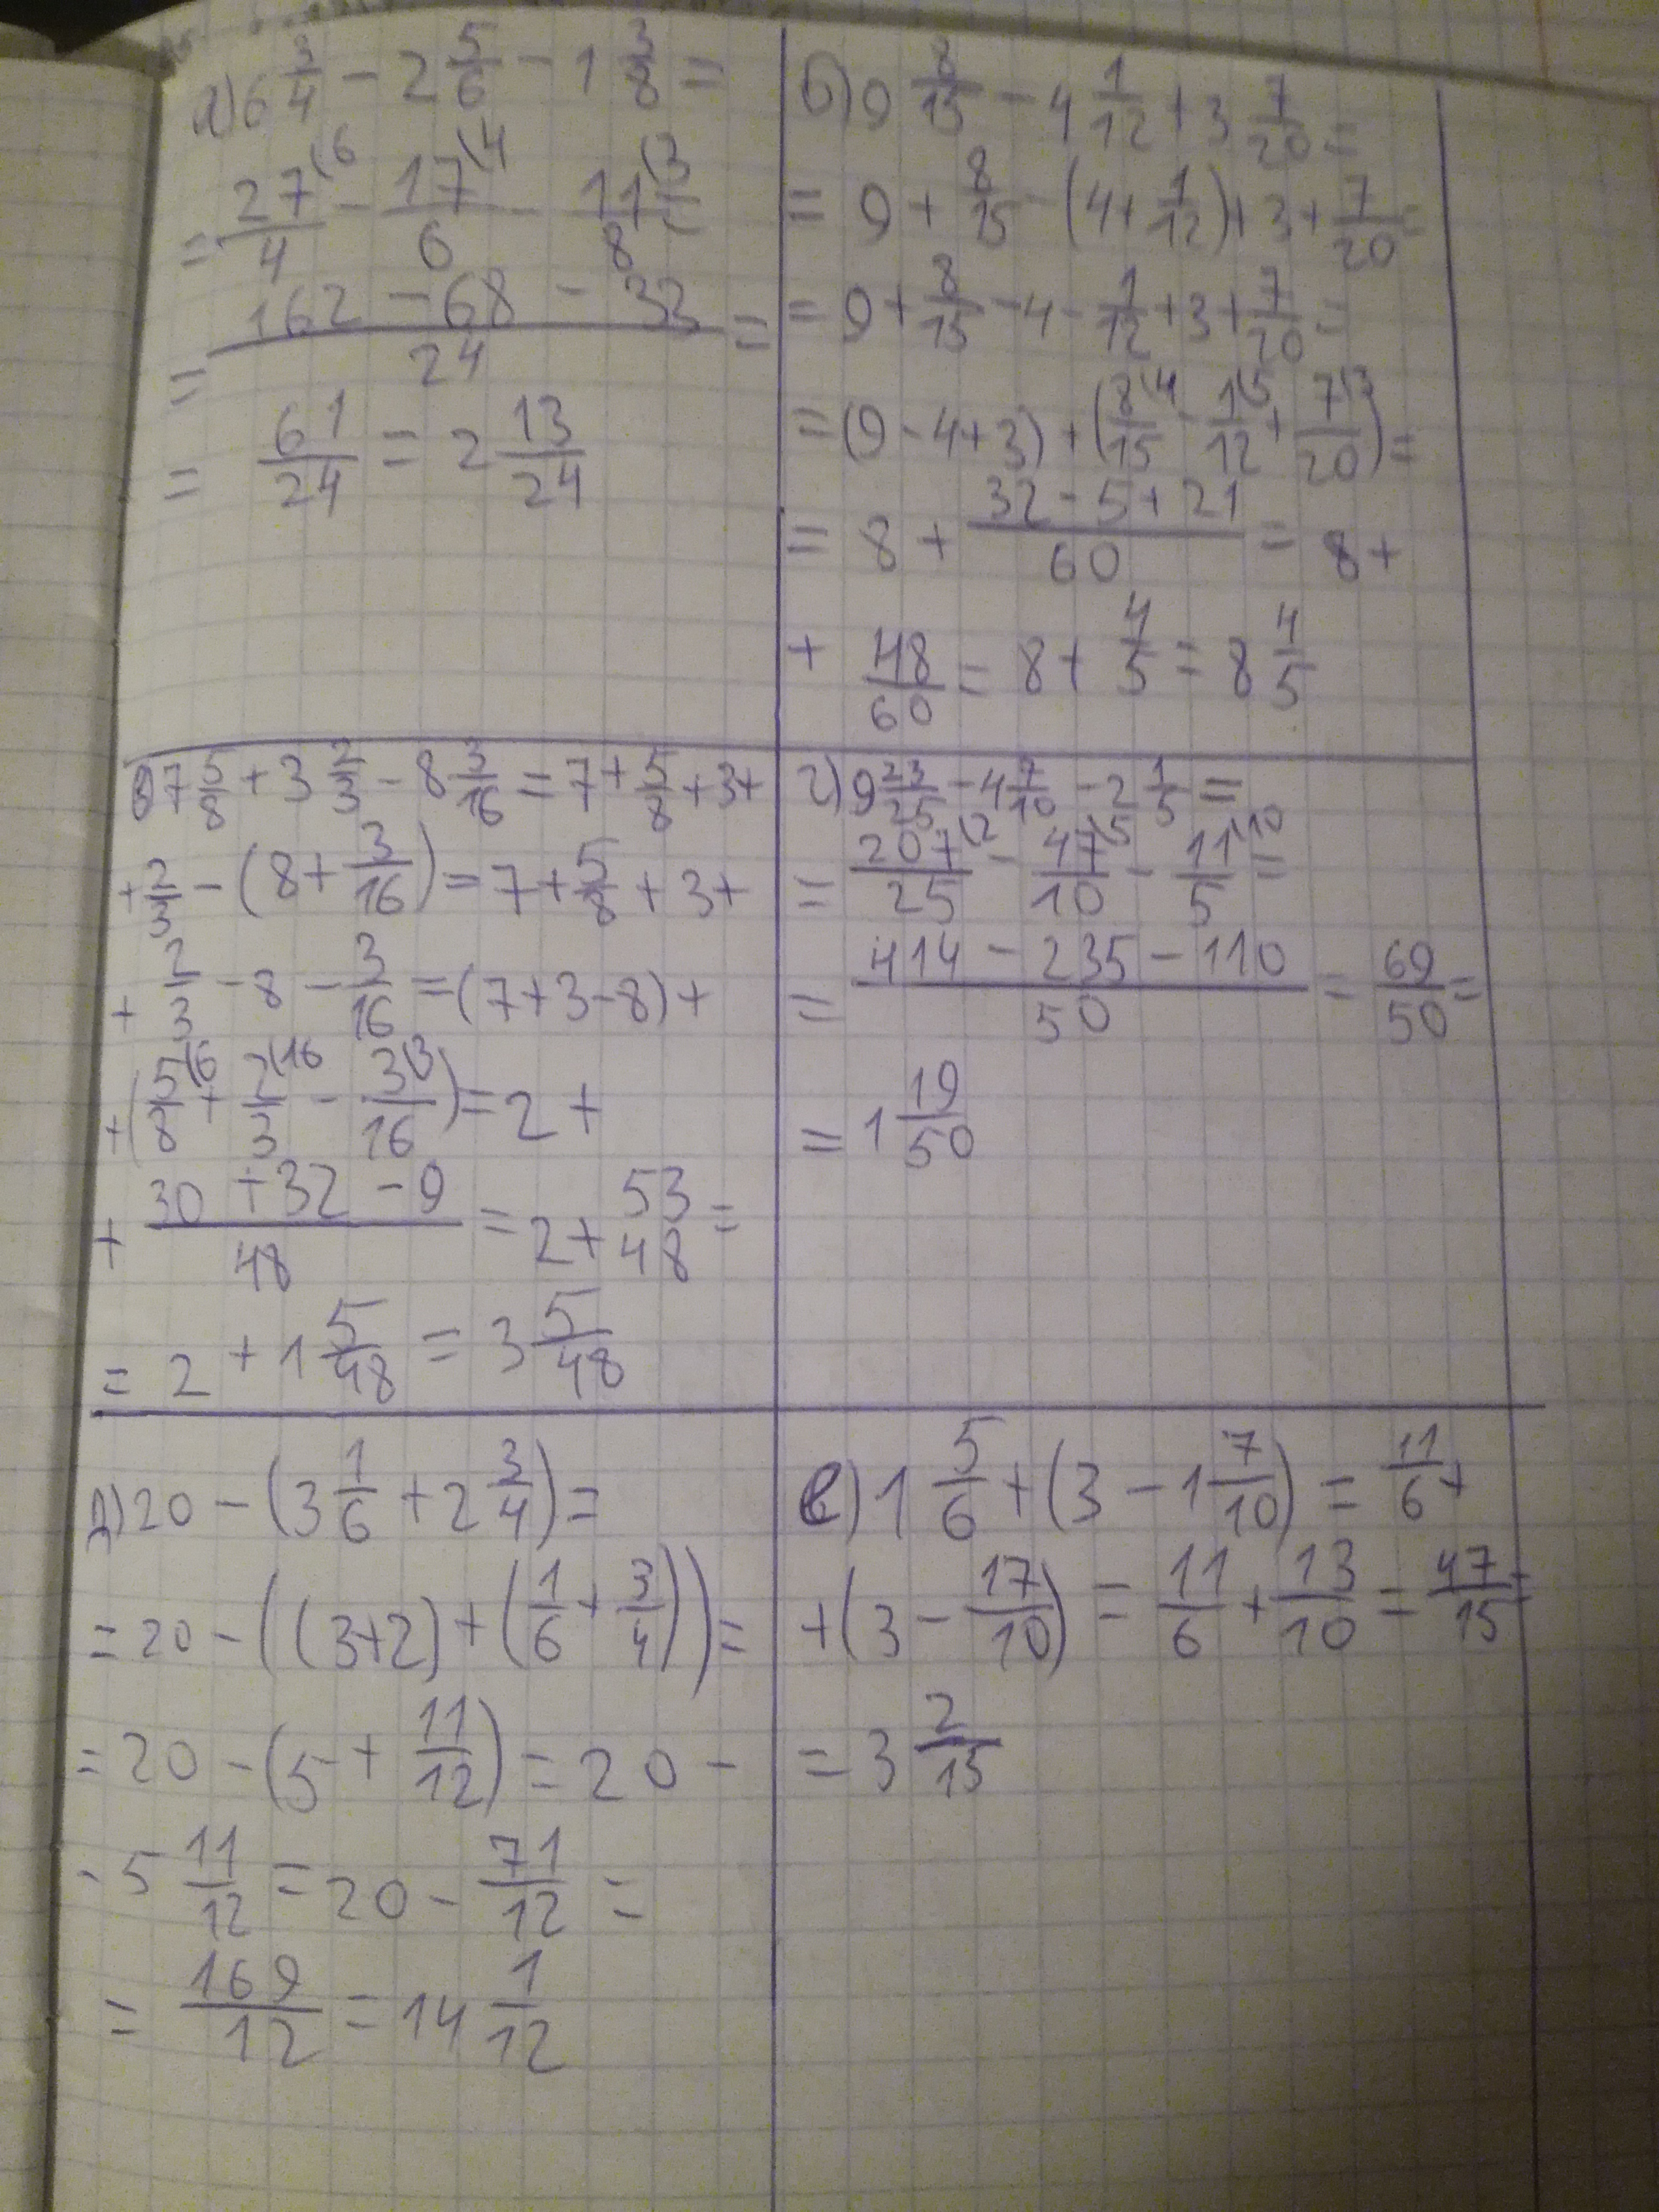 а) 6 3/4 - 2 5/6 - 1 3/8 =
= 27(6/4 - 17(4/6 - 11(3/8 =
= (162 - 68 - 33)/24 =
= 61/24 = 2 13/24
б) 9 8/15 - 4 1/12 + 3 7/20 =
= 9 + 8/15 - (4 + 1/12) + 3 + 7/20 =
= 9 + 8/15 - 4 - 1/12 + 3 + 7/20 =
= (9 - 4 + 3) + (8(4/15 - 1(5/12 + 7(3/20) =
= 8 + (32 - 5 + 21)/60 = 8 +
+ 48/60 = 8 + 4/5 = 8 4/5
в) 7 5/8 + 3 2/3 - 8 3/16 = 7 + 5/8 + 3 +
+ 2/3 - (8 + 3/16) = 7 + 5/8 + 3 +
+ 2/3 - 8 - 3/16 = (7 + 3 - 8) +
+ (5(6/8 + 2(16/3 - 3(3/16) = 2 +
+ (30 + 32 - 9)/48 = 2 + 53/48 =
= 2 + 1 5/48 = 3 5/48
г) 9 23/25 - 4 7/10 - 2 1/5 =
= 207(2/25 - 47(5/10 - 11(10/5 =
= (414 - 235 - 110)/50 = 69/50 =
= 1 19/50
д) 20 - (3 1/6 + 2 3/4) =
= 20 - ((3+2) + (1/6 + 3/4)) =
= 20 - (5 + 11/12) = 20 -
- 5 11/12 = 20 - 71/12 =
= 169/12 = 14 1/12
е) 1 5/6 + (3 - 1 7/10) = 11/6 +
+ (3 - 17/10) = 11/6 + 13/10 = 47/15 =
= 3 2/15